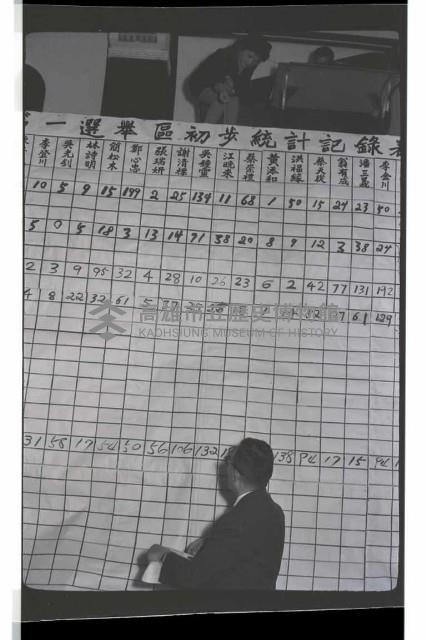 一選舉區初步統計記錄
李金川 吳光釗 林詩明 簡松木 鄭心忠 張瑞妍 謝清標 吳鍾靈 江曉來 蔡榮禮 黃添和 洪福緣 蔡天從 翁有成 潘三義 李金川
10 5 9 15 199 2 25 134 11 68 1 50 15 24 23 50
5 0 5 18 3 13 14 71 38 20 8 9 12 3 38 24
2 3 9 95 32 4 28 10 26 23 6 2 42 77 131 142
4 8 22 32 61 5 37 61 129
高雄市立歷史博物館
KAOHSIUNG MUSEUM OF HISTORY
31 58 17 54 56 106 132 138 94 17 15 94